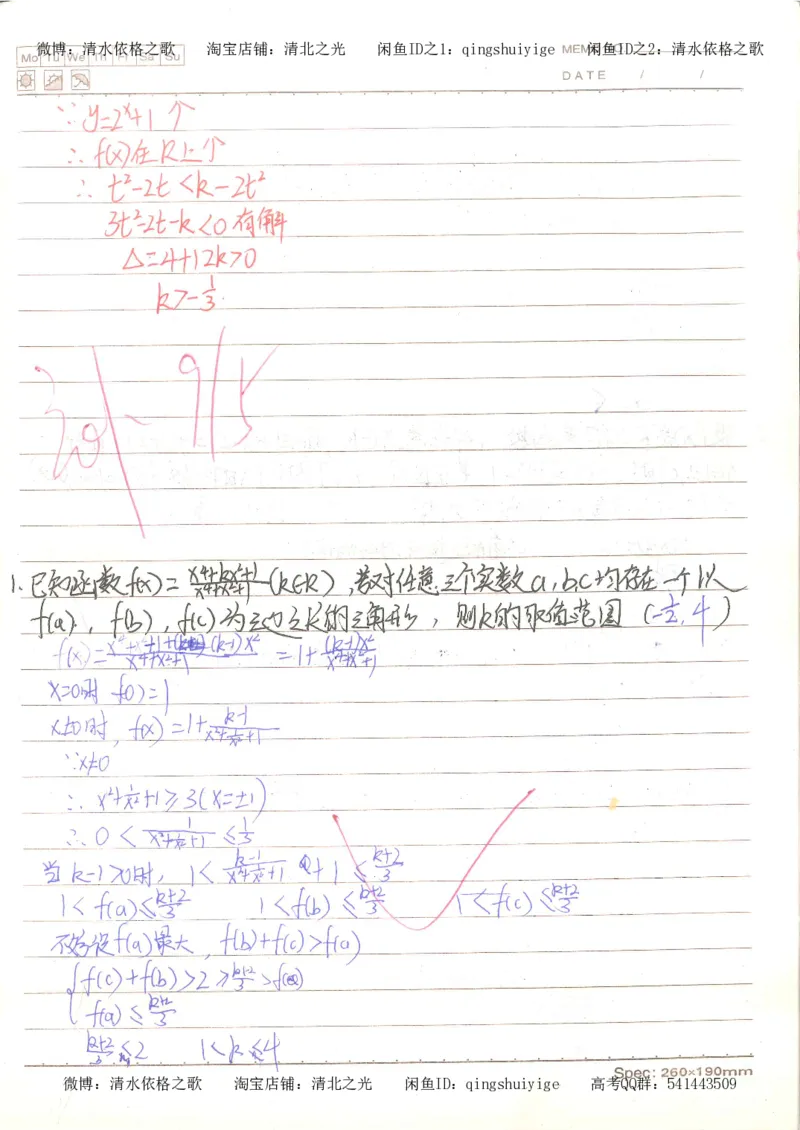 微博：清水依格之歌 淘宝店铺：清北之光 闲鱼ID之1：qingshuiyige 闲鱼ID之2：清水依格之歌
Mo Tu We Th Fr Sa Su
MEMO NO.
DATE / /
∵ y=2^x+1 ↑
∴ f(x)在R上个
∴ t²-2t<k-2t²
3t²-2t-k<0有解
Δ=4+12k>0
k>-1/3.
1.已知函数f(x)=(x⁴+kx²+1)/(x⁴+x²+1) (k∈R),若对任意三个实数a,b,c均存在一个以
f(a),f(b),f(c)为三边之长的三角形,则k的取值范围(-1/2,4)
f(x)=(x⁴+x²+1+(k-1)x²)/(x⁴+x²+1) =1+(k-1)x²/(x⁴+x²+1)
x=0时 f(0)=1
x≠0时,f(x)=1+(k-1)/(x²+1/x²+1)
∵x≠0
∴ x²+1/x²+1≥3(x=±1)
∴ 0<1/(x²+1/x²+1)≤1/3
当k-1>0时, 1<(k-1)/(x²+1/x²+1)+1≤(k+2)/3
1<f(a)≤(k+2)/3 1<f(b)≤(k+2)/3 1<f(c)≤(k+2)/3
不妨设f(a)最大,f(b)+f(c)>f(a)
{f(c)+f(b)>2≥(k+2)/3>f(a)
f(a)≤(k+2)/3
(k+2)/3≤2 1<k≤4
Spec: 260×190mm
微博：清水依格之歌 淘宝店铺：清北之光 闲鱼ID：qingshuiyige 高考QQ群：541443509